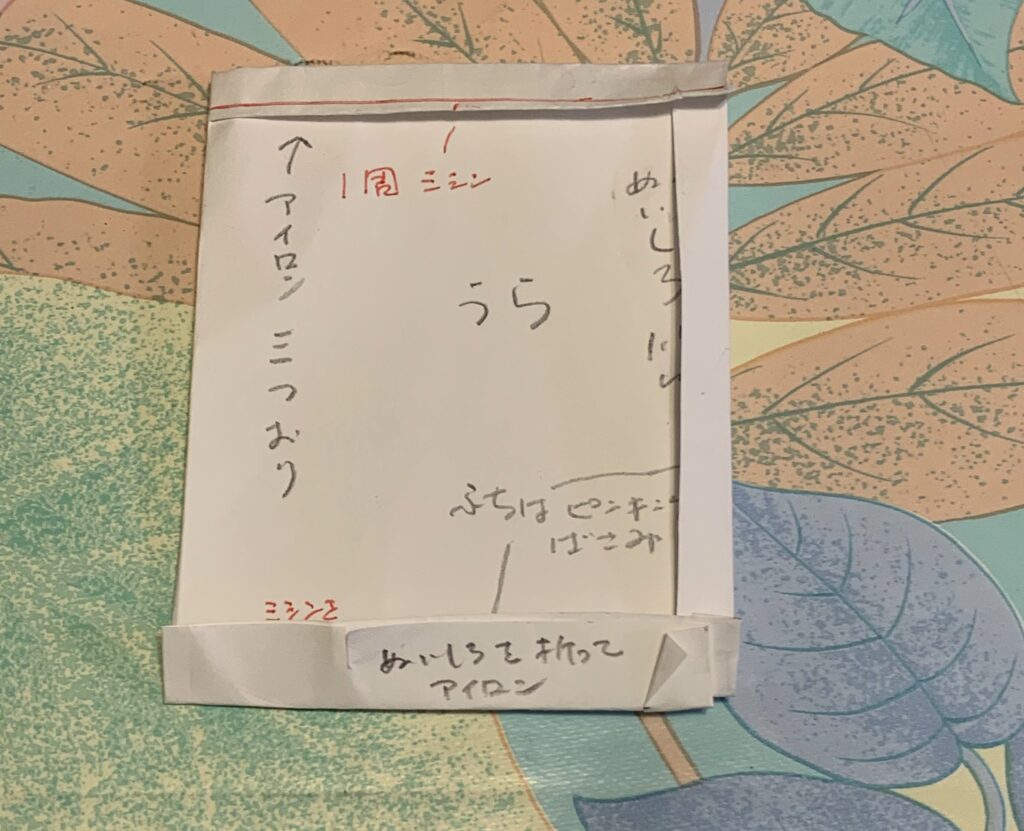 ↑アイロン三つおり
1周 ミシン
うら
ぬいしろ
ふちは ピンキン
ばさみ
ミシンを
ぬいしろを折って
アイロン